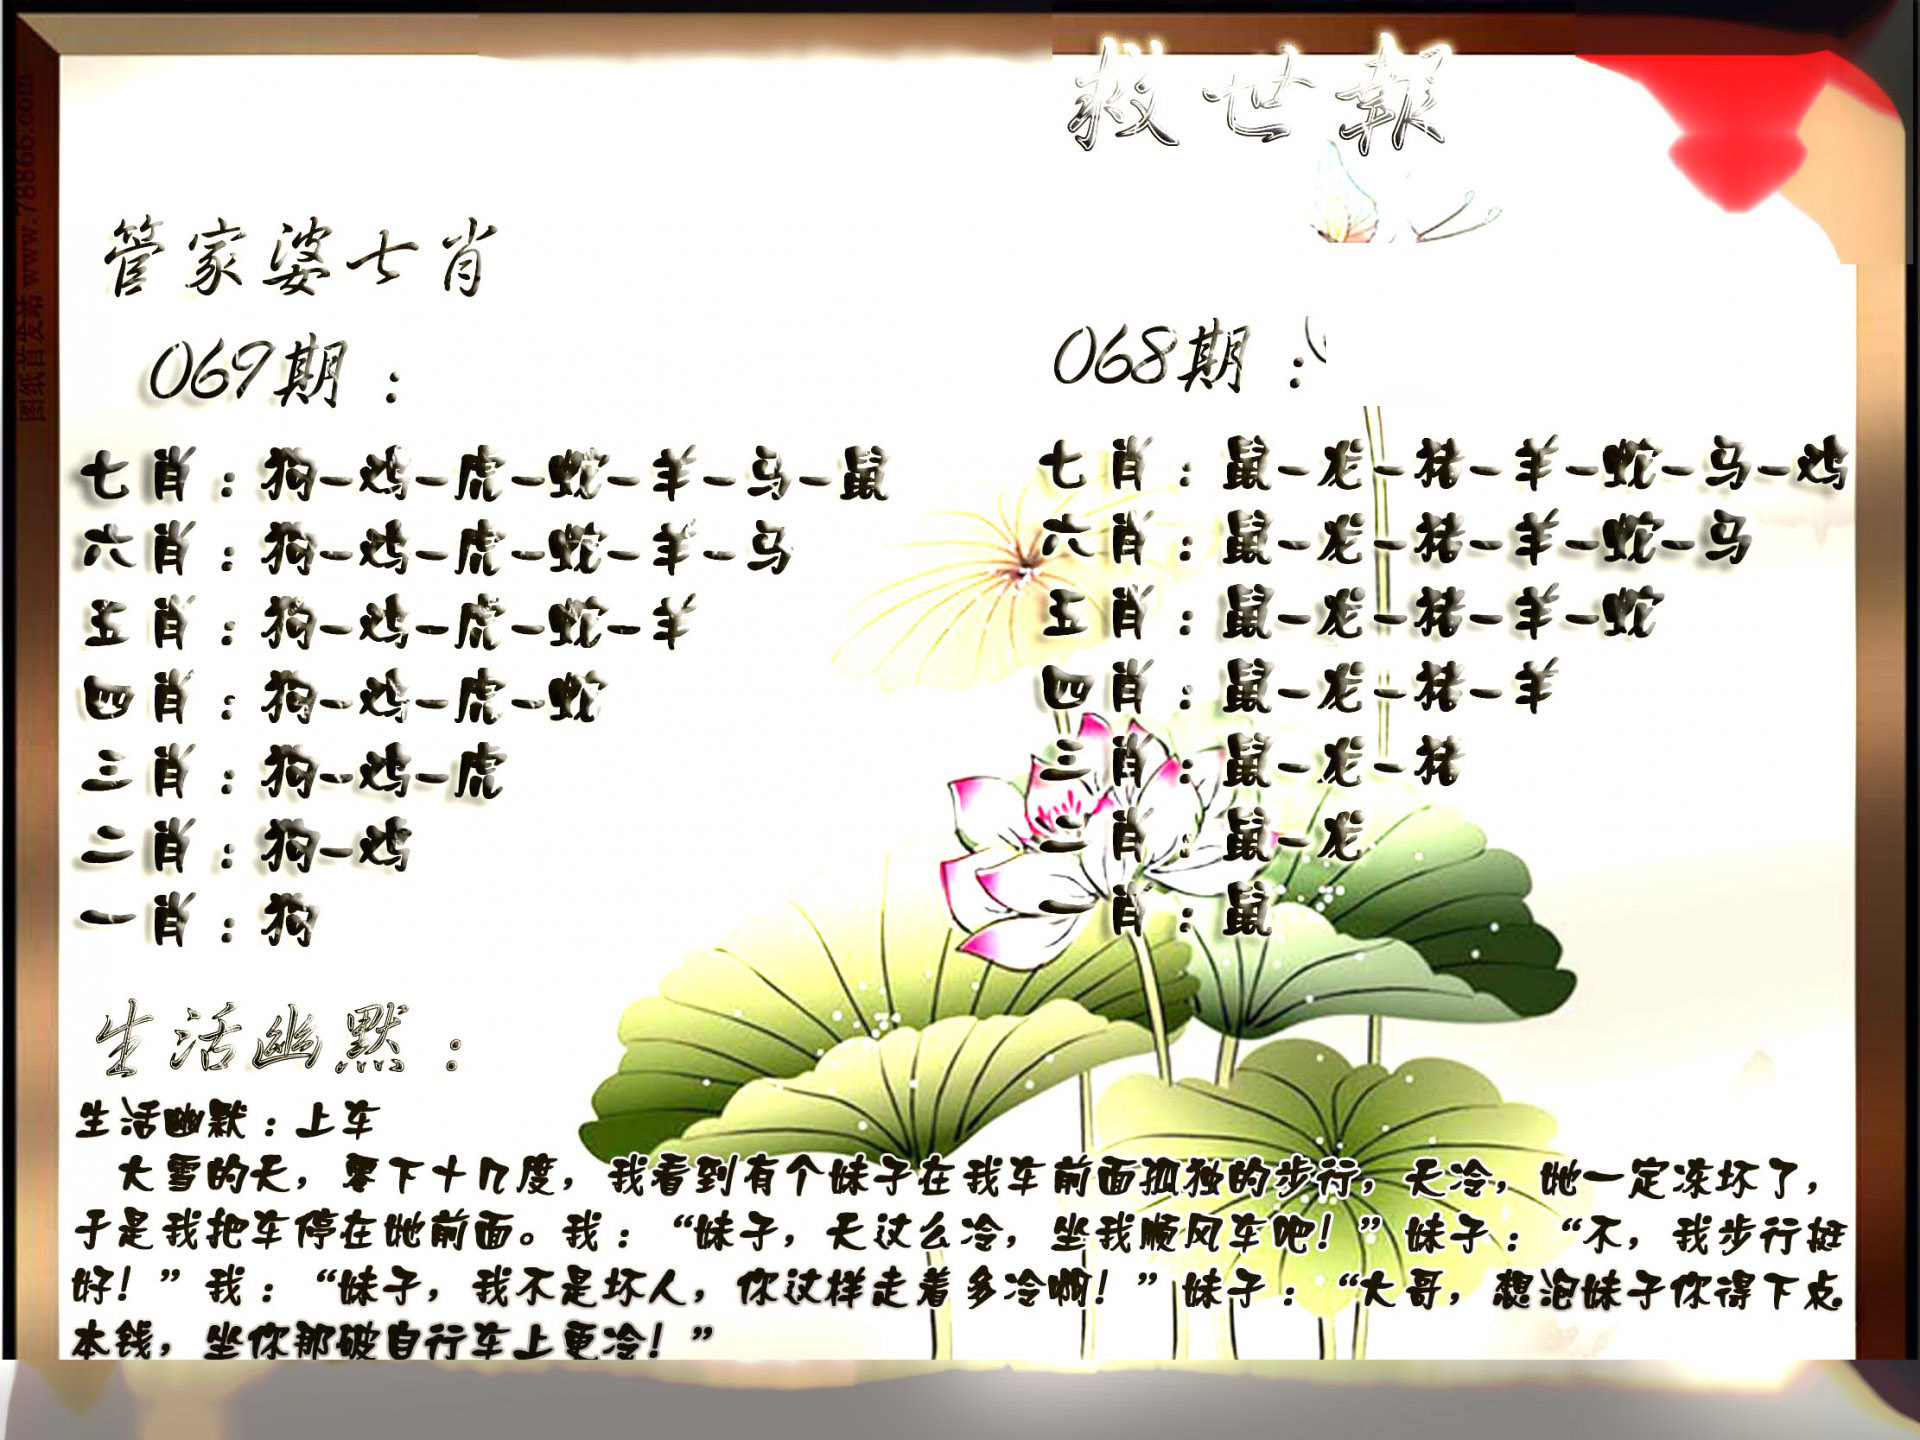 救世報
管家婆七肖
069期：
七肖：狗-鸡-虎-蛇-羊-马-鼠
六肖：狗-鸡-虎-蛇-羊-马
五肖：狗-鸡-虎-蛇-羊
四肖：狗-鸡-虎-蛇
三肖：狗-鸡-虎
二肖：狗-鸡
一肖：狗
068期：
七肖：鼠-龙-猪-羊-蛇-马-鸡
六肖：鼠-龙-猪-羊-蛇-马
五肖：鼠-龙-猪-羊-蛇
四肖：鼠-龙-猪-羊
三肖：鼠-龙-猪
二肖：鼠-龙
一肖：鼠
生活幽默：
生活幽默：上车
大雪的天，零下十几度，我看到有个妹子在我车前面孤独的步行，天冷，她一定冻坏了，
于是我把车停在她前面。我：“妹子，天这么冷，坐我顺风车吧！”妹子：“不，我步行挺
好！”我：“妹子，我不是坏人，你这样走着多冷啊！”妹子：“大哥，想泡妹子你得下点
本钱，坐你那破自行车上更冷！”
图纸首发站 www.78866.com